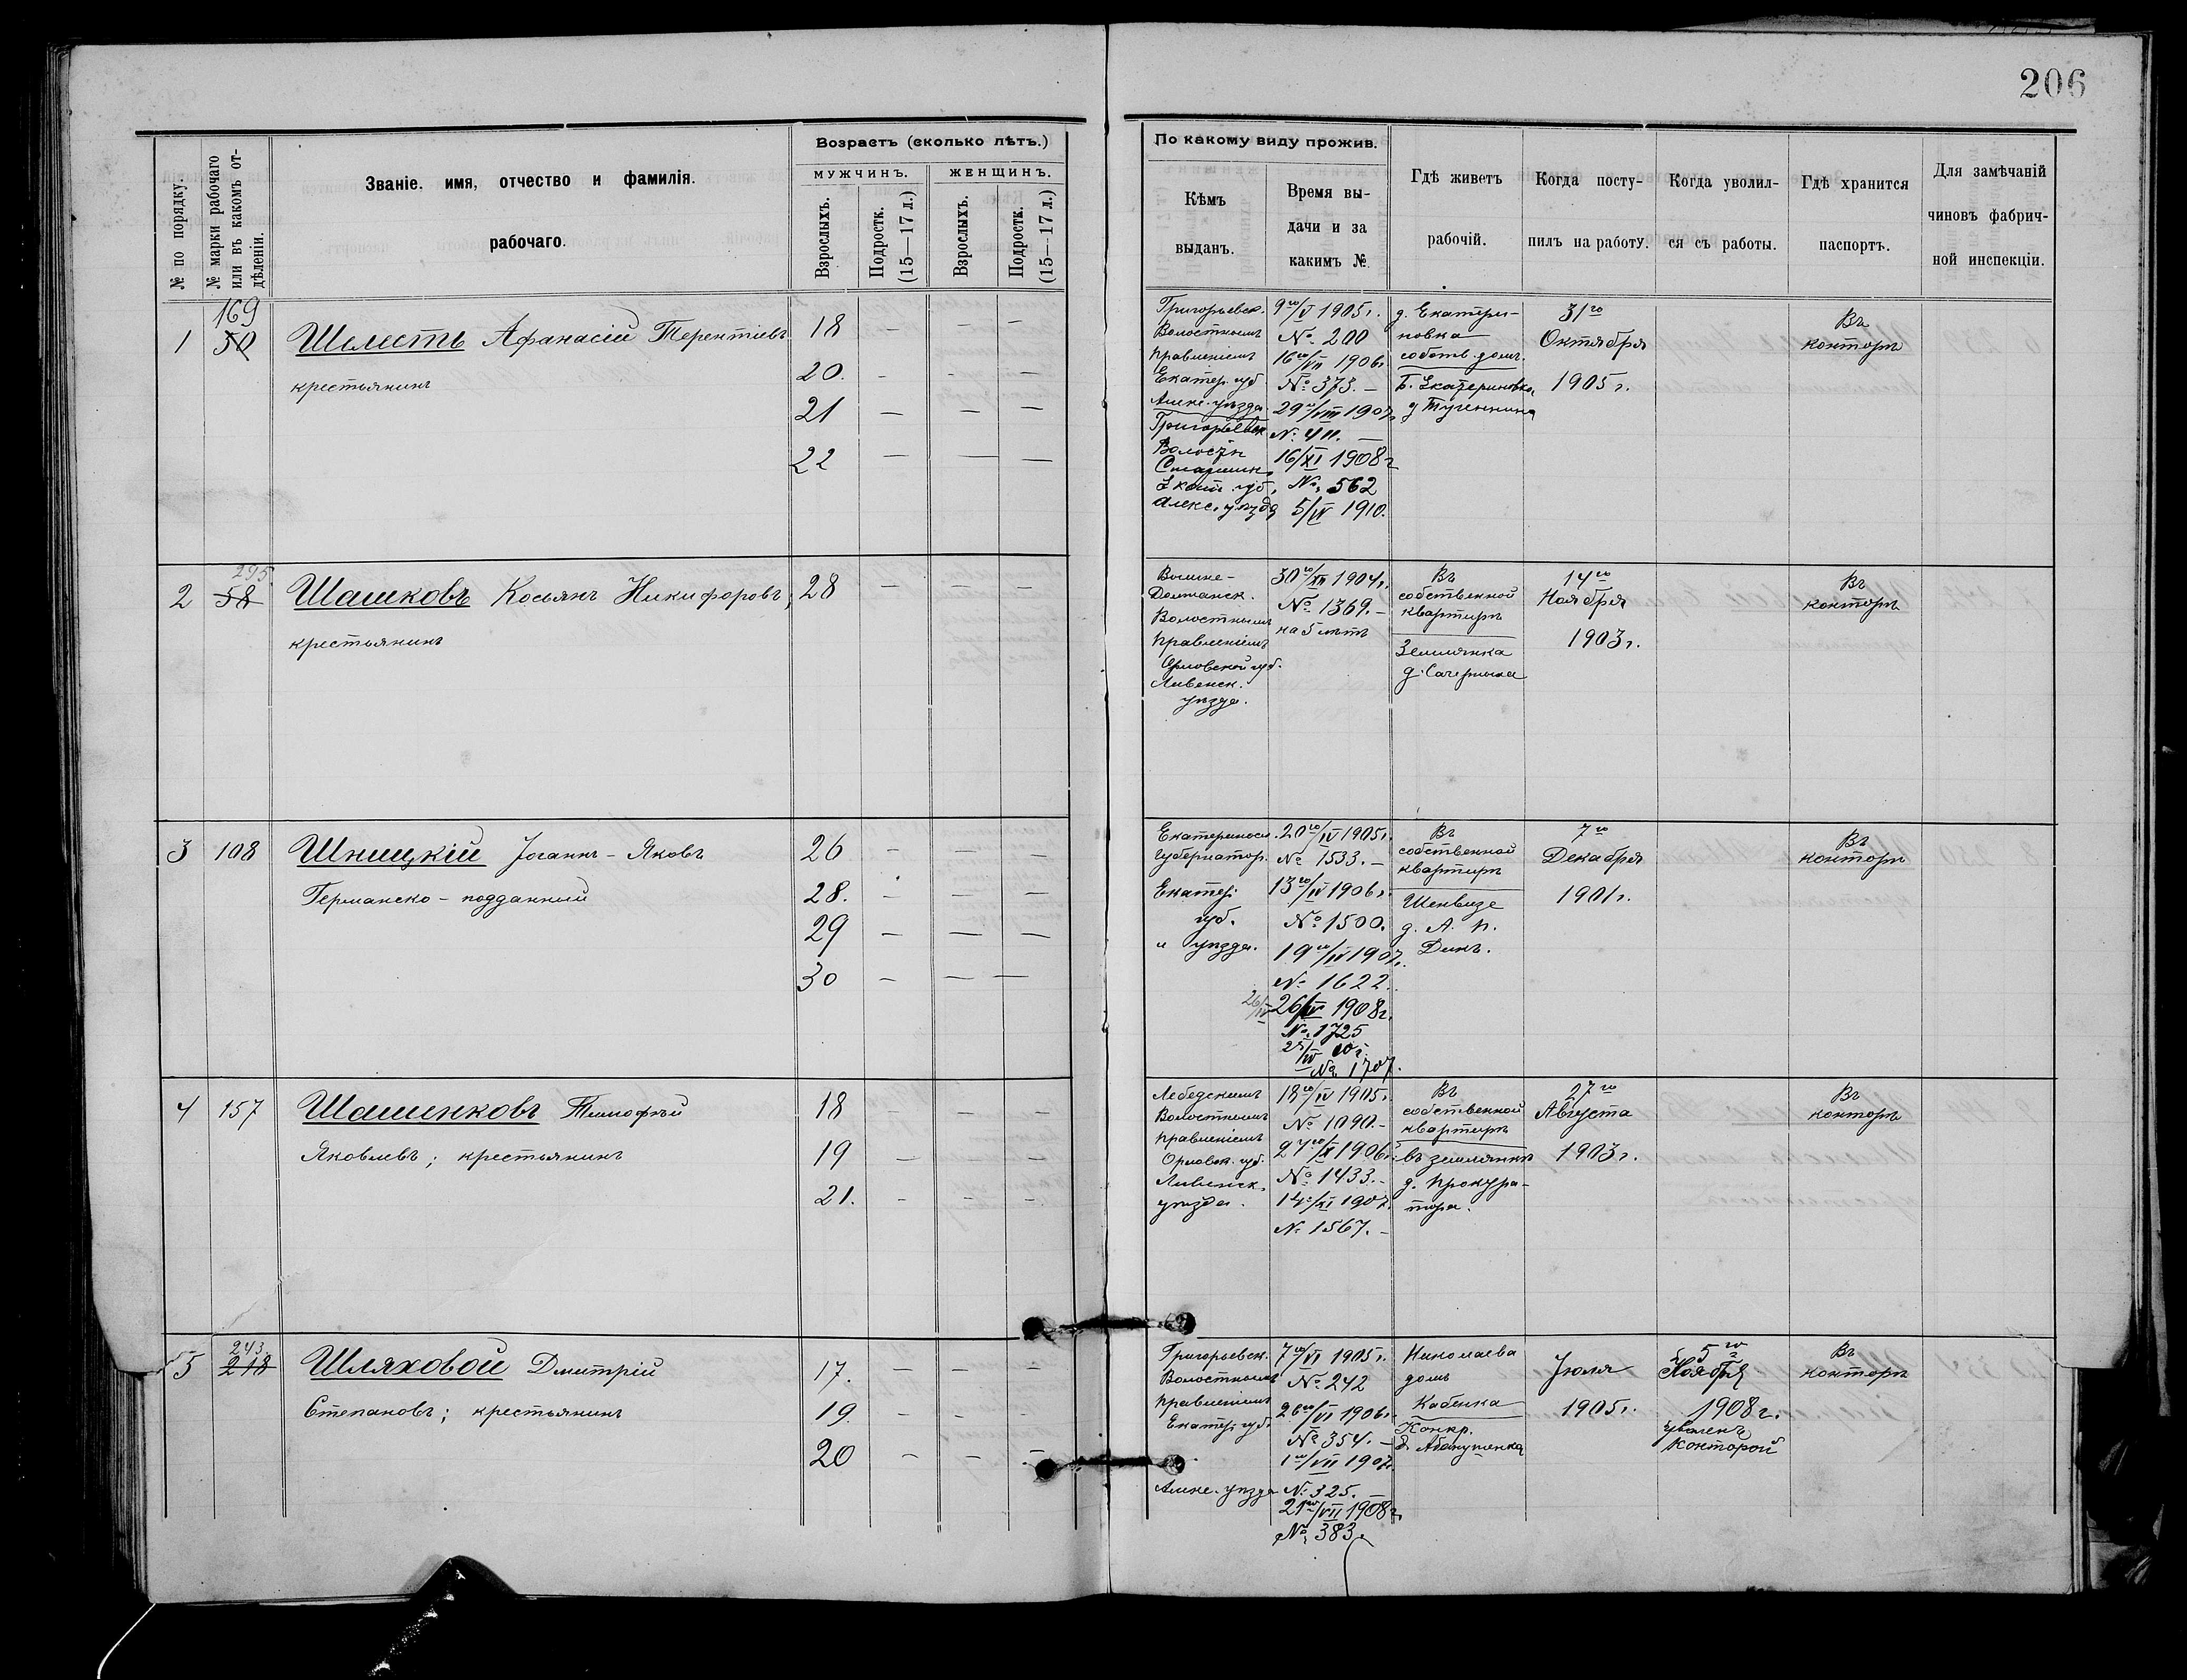 206
№ по порядку.
№ марки рабочаго или въ какомъ отдѣленіи.
Званіе. имя, отчество и фамилія.
рабочаго.
Возрастъ (сколько лѣтъ.)
МУЖЧИНЪ.
ЖЕНЩИНЪ.
Взрослыхъ.
Подростк. (15—17 л.)
Взрослыхъ.
Подростк. (15—17 л.)
По какому виду прожив.
Кѣмъ
выданъ.
Время вы-
дачи и за
какимъ №
Гдѣ живетъ
рабочій.
Когда посту-
пилъ на работу.
Когда уволил-
ся съ работы.
Гдѣ хранится
паспортъ.
Для замѣчаній
чиновъ фабрич-
ной инспекціи.
1
169
50
Шелесть Афанасій Терентіевъ
крестьянинъ
18 — — —
20. — — —
21 — — —
22 — — —
Григорьевск.
Волостнымъ
правленіемъ
Екатер. губ
Алекс. уѣзда.
Григорьевск
Волостн
Старшин.
Екат. губ.
Алекс. уѣзда
9го/V 1905г.
№ 200
16го/VII 1906г
№ 373. —
29го/VIII 1907г
№ 411. —
16/XI 1908г
№ 562
5/IV 1910.
д. Екатери-
новка
собств. домъ.
Б. Екатериновка,
31го
Октября
1905 г.
Въ
конторѣ
2
295.
58
Шашковъ Косьянъ Никифоровъ;
крестьянинъ
28 — — —
Волостнымъ
правленіемъ
Орловской губ.
Ливенск.
уѣзда.
30го/XII 1904г.
№ 1369. —
на 5 лѣтъ
Въ
собственной
квартирѣ
Землянка
14го
Ноября
1903 г.
Въ
конторѣ
3
108
Шницкій Іоганъ - Яковъ
Германско - подданный
26 — — —
28. — — —
29 — — —
30 — — —
Екатериносл.
губернатор.
Екатер.
губ.
и уѣзда.
20го/IV 1905г.
№ 1533. —
13го/IV 1906г.
№ 1500.
19го/IV 1907г.
№ 1622.
26/IV
26/IV 1908г.
№ 1725
№ 1707.
Въ
собственной
квартирѣ
Шенвизе
д. А. П.
Дикъ.
7го
Декабря
1901г.
Въ
конторѣ
4
157
Шашенковъ Тимофѣй
Яковлевъ; крестьянинъ
18 — — —
19 — — —
21. — — —
Лебедскимъ
Волостнымъ
правленіемъ
Орловск. губ.
Ливенск.
уѣзда.
18го/IV 1905г.
№ 1090. —
1906г.
№ 1433. —
14го/XI 1907г.
№ 1567. —
Въ
собственной
квартирѣ
въ землянкѣ
д. Прокура-
тора.
27го
Августа
1903г.
Въ
конторѣ
5
243.
218
Шляховой Дмитрій
Степановъ; крестьянинъ
17. — — —
19. — —
20 — — —
Григорьевск.
Волостнымъ
правленіемъ
Екатер. губ.
Алекс. уѣзда
7го/VI 1905г.
№ 242
26го/VI 1906г.
№ 354. —
1го/VII 1907г.
№ 325. —
21го/VII 1908г.
№ 383.
Николаева
домъ
Кабенка
Іюля
1905г.
5го
Ноября
1908г.
уволенъ
конторой
Въ
конторѣ